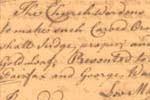 The Church Wardens
to make each Carved Orn
shall Judge, proper; and
Gold Leaf; Presented to
Fairfax and George, Wa